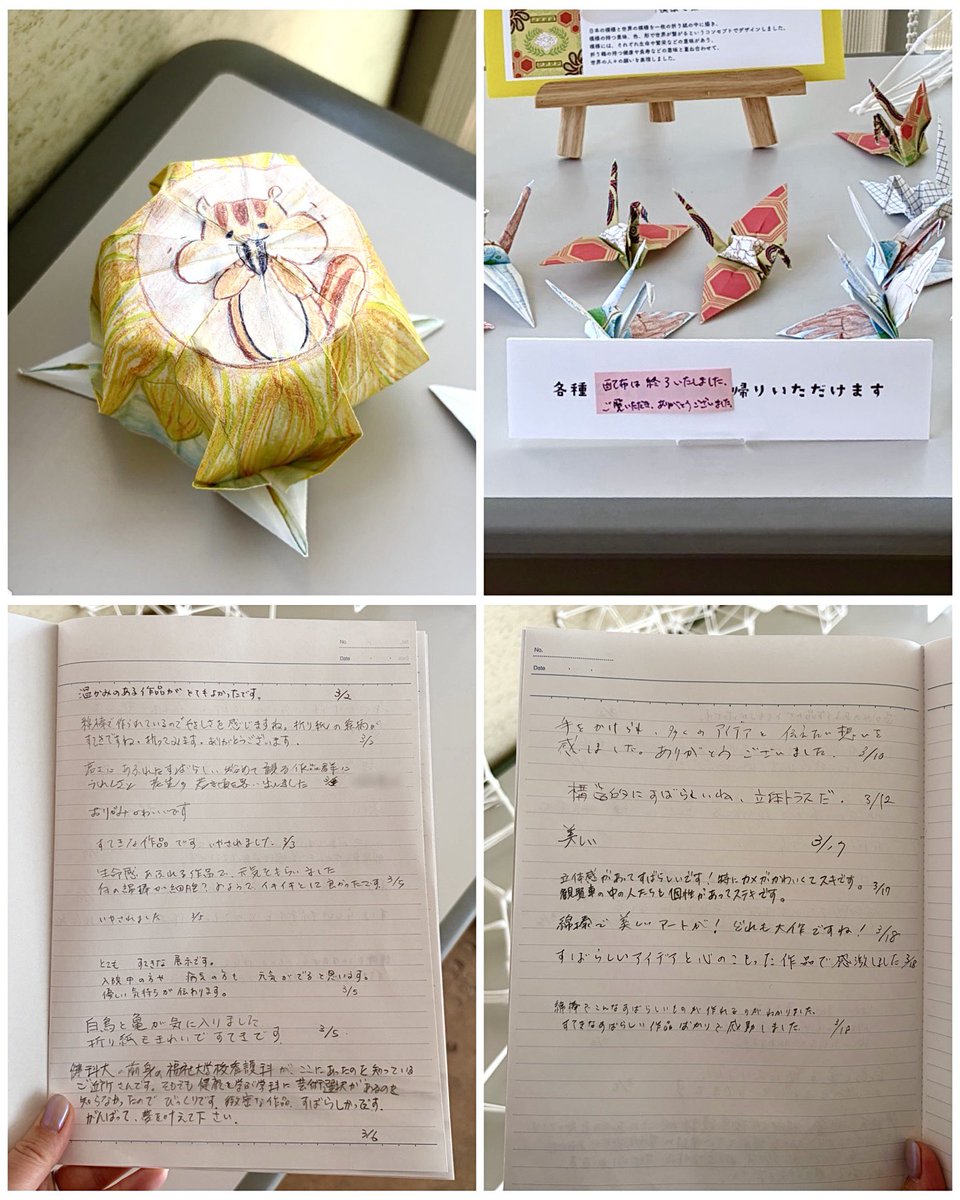 日本の模様と世界の模様を一枚の折り紙の中に描き、
模様の持つ意味、色、形で世界が繋がるというコンセプトでデザインしました。
模様には、それぞれ生命や繁栄などの意味があり、
折り鶴の持つ健康や長寿などの意味と重ね合わせて、
世界の人々の願いを表現しました。
各種 帰りいただけます
配布は終了いたしました。
ご覧いただき、ありがとうございました。
No.
Date
温かみのある作品がとてもよかったです。 3/2
綿棒で作られているのでやさしさを感じますね。折り紙の
すてきですね、折ってみます。ありがとうございます。 3/2
あふれたすばらしい 初めて観る作品群に
うれしさと
おりがみかわいいです
すてきな作品です いやされました 3/3
生命感あふれる作品で、元気をもらいました
何の綿棒が細胞?のようで イキイキとして良かったです 3/5
いやされました 3/5
とても すてきな展示です。
入院中の方や 病気の方も 元気がでると思います。
優しい気持ちが伝わります。 3/5
白鳥と亀が気に入りました
折り紙もきれいですてきです 3/5
健科大の前身の福祉大学校看護科が、ここにあったのを知っている
ご近所さんです。そもそも健康を学ぶ学科に芸術選択があるのを
知らなかったのでびっくりです。緻密な作品、すばらしかったです。
がんばって、夢を叶えて下さい。
3/6
No.
Date
手をかけられ、多くのアイデアと伝えたい想いを
感じました。ありがとうございました。 3/10
構造的にすばらしいね、立体トラスだ。 3/12
美しい 3/17
立体感があってすばらしいです!特にカメがかわいくてスキです。 3/17
観覧車の中の人たちも個性があってステキです。
綿棒で美しいアートが!どれも大作ですね! 3/18
すばらしいアイデアと心のこもった作品で感激しました 3/18
綿棒でこんなすばらしいものが作れるのがわかりました。
すてきなすばらしい作品ばかりで感動しました 3/18